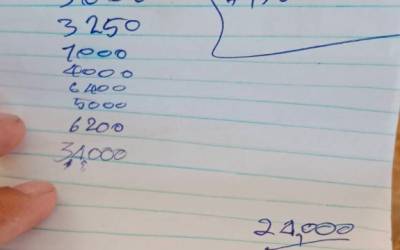 3250
1000
4000
6400
5000
6200
34,000
24,000